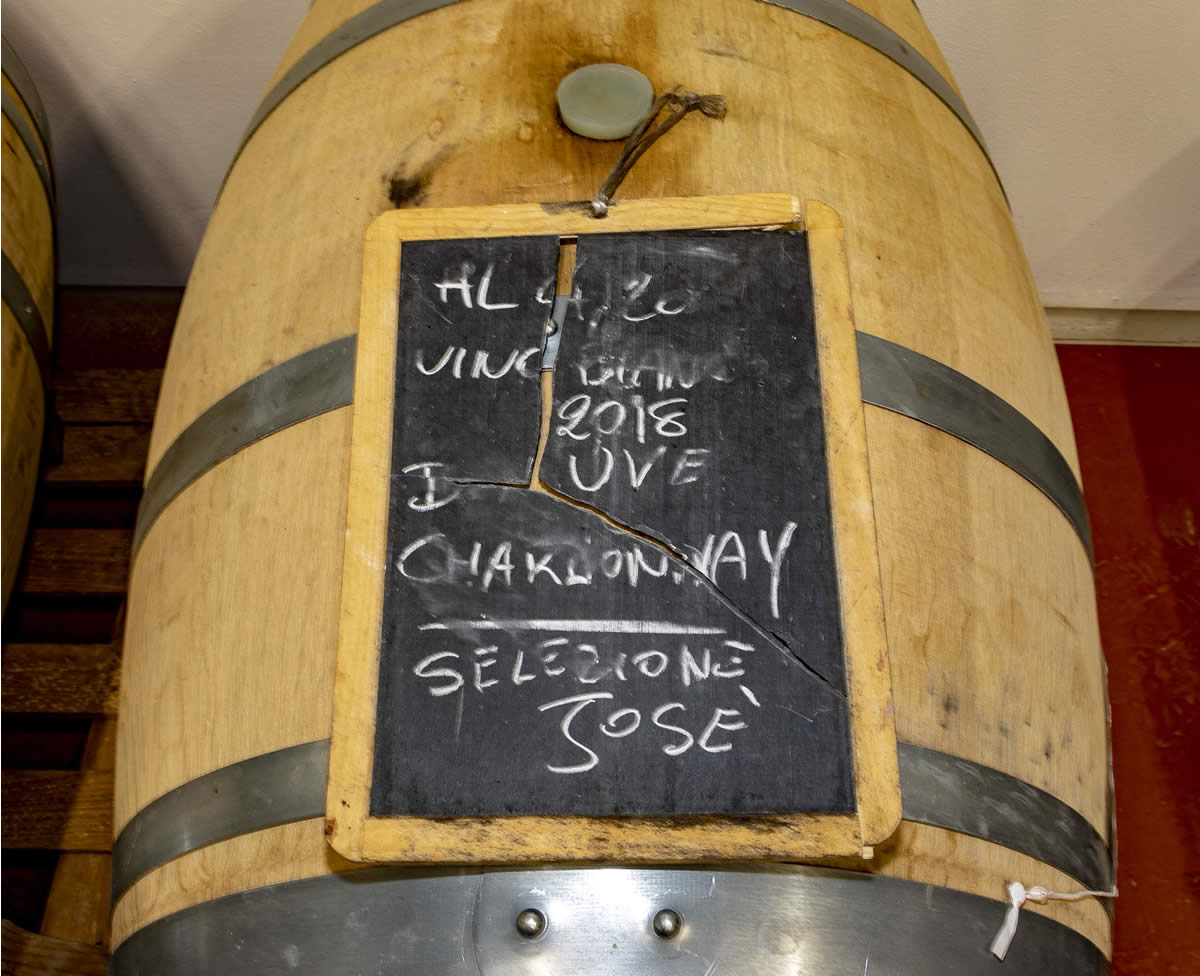 AL
VINO BIANCO
2018
UVE
CHARDONNAY
SELEZIONE
JOSE`